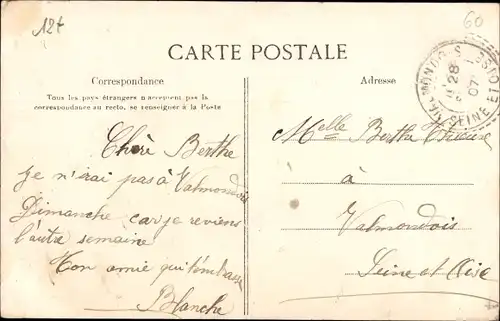 12t
60
CARTE POSTALE
Correspondance
Tous les pays étrangers n'acceptent pas la
correspondance au recto, se renseigner à la Poste
Chère Berthe
Je n'irai pas à Valmondois
Dimanche car je reviens
l'autre semaine
Ton amie qui t'embrasse
Blanche
Adresse
Melle Berthe
à
Valmondois
Seine et Oise
28
07
SEINE ET OISE